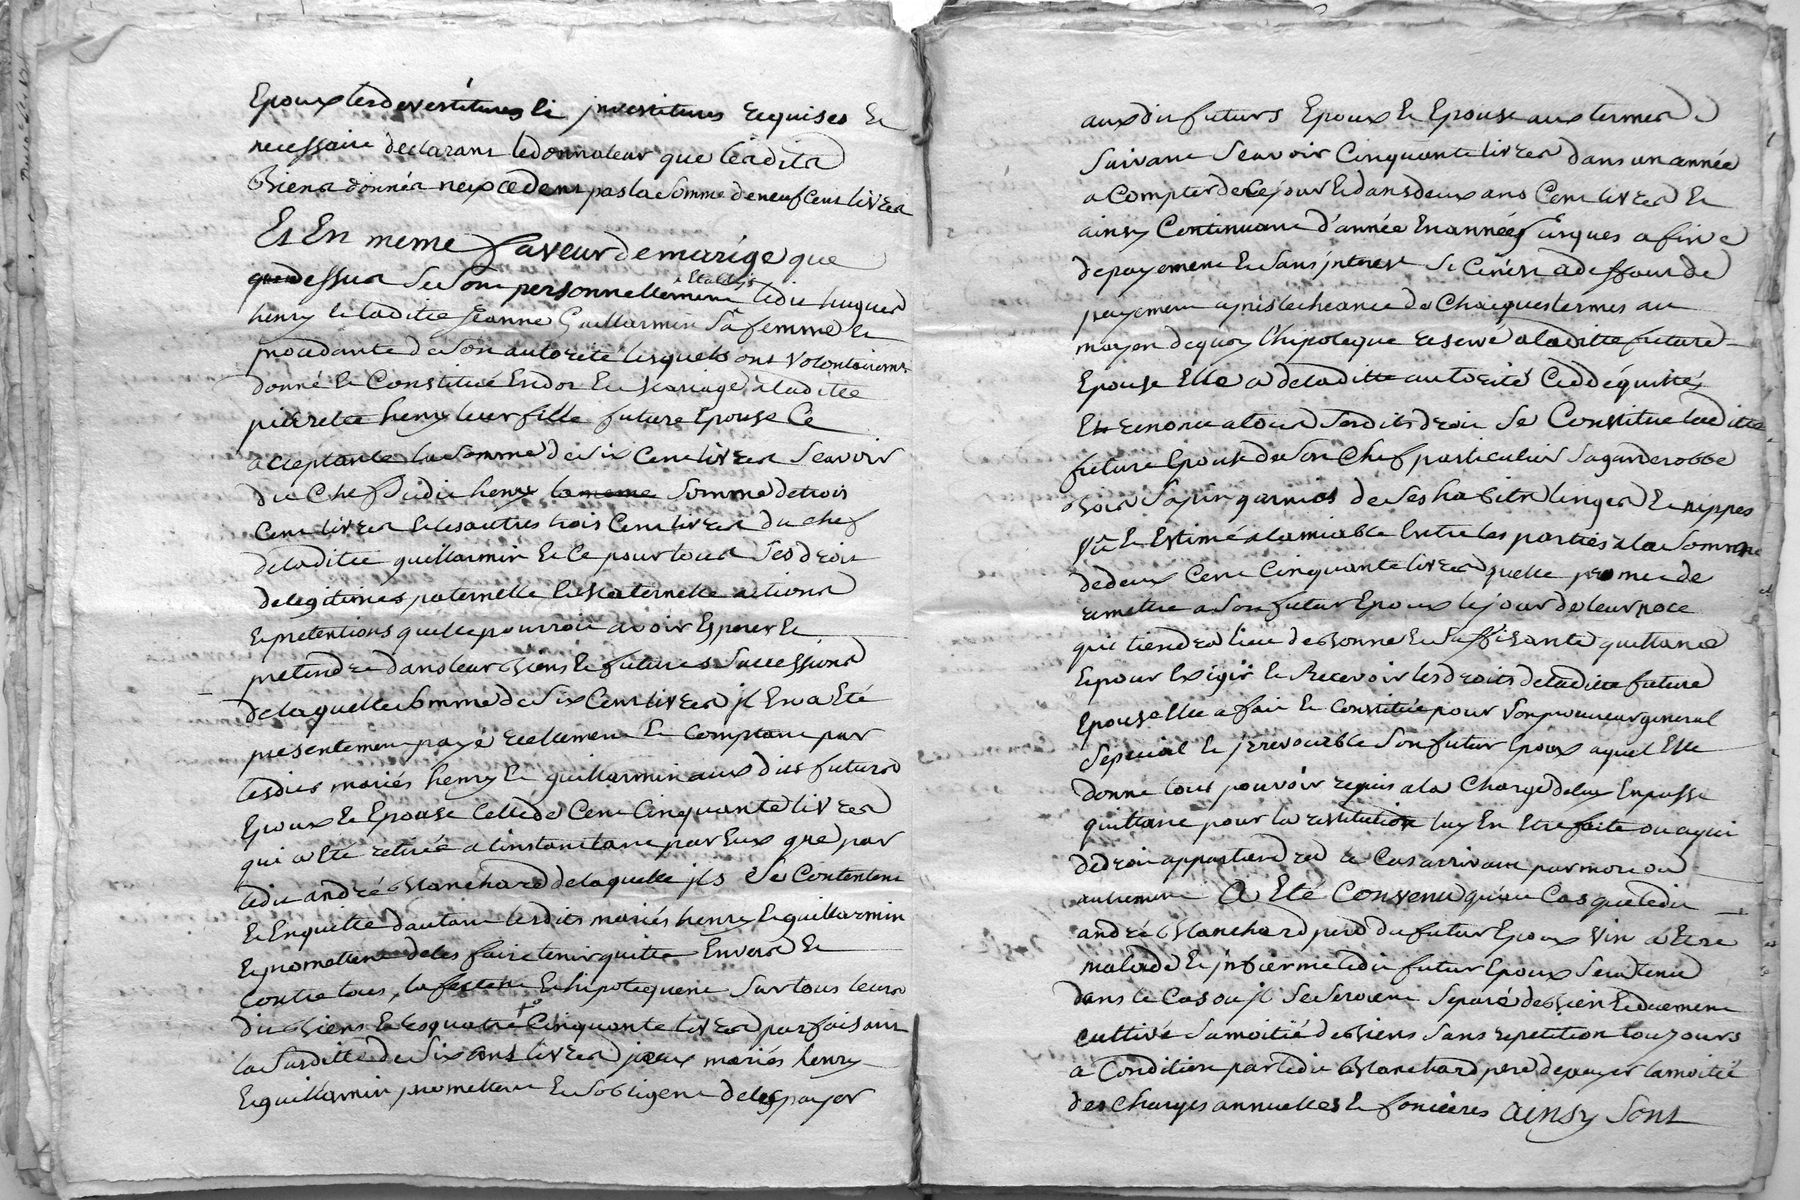 Epoux les devestitures et jnvestitures requises Et
necessaire declarant ledonnateur que lesdits
Biens donnés nexcedent pas la somme de neuf Cent livres
Et En meme faveur de mariage que
que dessus se sont personnellement Etablis ledit hugues
henry et laditte jeanne Guillarmin sa femme Et
procedante de son autorité lesquels ont volontairemt
donné Et Constitué En dot Et Mariage a laditte
pierrette henry leur fille future Epouse Ce
acceptante la somme de six Cent livres scavoir
du Chef dudit henry la meme somme de trois
Cent livres Et les autres trois Cent livres du chef
de laditte guillarmin Et Ce pour tous ses droit
de legitimes paternelle Et Maternelle actions
Et pretentions quelle pourroit avoir Esperer Et
pretendre dans leur Biens Et futures successions
de laquelle somme de six Cent livres jl En a Eté
presentement payé reellement Et Comptant par
lesdits mariés henry Et guillarmin aux dits futurs
Epoux Et Epouse Celle de Cent Cinquante livres
qui a Eté retirée a linstant tant par Eux que par
ledit andré Blanchard de laquelle jls se Contentent
Et Enquitte dautant lesdits mariés henry Et guillarmin
Et promettent de les faire tenir quitte Envers Et
Contre tous, Et hipotequent sur tous leurs
dit Biens Et les quatre Ct Cinquante livres parfaisant
la susditte de six Cent livres jceux mariés henry
Et guillarmin promettent Et sobligent de les payer
aux dit futurs Epoux Et Epouse aux termes
suivant scavoir Cinquante livres dans un année
a Compter de Ce jour Et dans deux ans Cent livres Et
ainsy Continuant d'année En année jusques a fin
de payement Et sans jnterest si Ce n'est a deffaut de
payement apres lecheance de Chacques termes au
moyen de quoy l'hipoteque reservé a laditte future
Epouse Elle a de laditte autorité Cedé quitté
Et renoncé a tous sesdits droit se Constitue laditte
future Epouse de son Chef particulier sa garderobbe
Bois sapin garnies de ses habits linges Et nippes
Vû Et Estimé a lamiable Entre les parties a la somme
de deux Cent Cinquante livres quelle promet de
remettre a son futur Epoux le jour de leur noce
qui tiendra lieu de Bonne Et suffisante quittance
Et pour Exigir Et Recevoir les droits de laditte future
Epouse Elle a fait Et constitué pour son procureur general
special Et jrrevocable son futur Epoux aquel Elle
donne tous pouvoir requis a la Charge de luy En passe
quittance pour la restitution luy En Etre faite ou a qui
de droit appartiendra le Cas arrivant par mort ou
autrement A Eté Convenu qu'au Cas que ledit
andré Blanchard pere du futur Epoux vin a Etre
malade Et jnfirme ledit futur Epoux sera tenu
dans le Cas ou jl se seroient separé de Bien Et duement
cultivé sa moitié de Biens sans repetition toujours
a Condition par ledit Blanchard pere de payer la moitié
des Charges annuelles Et foncières ainsy sont